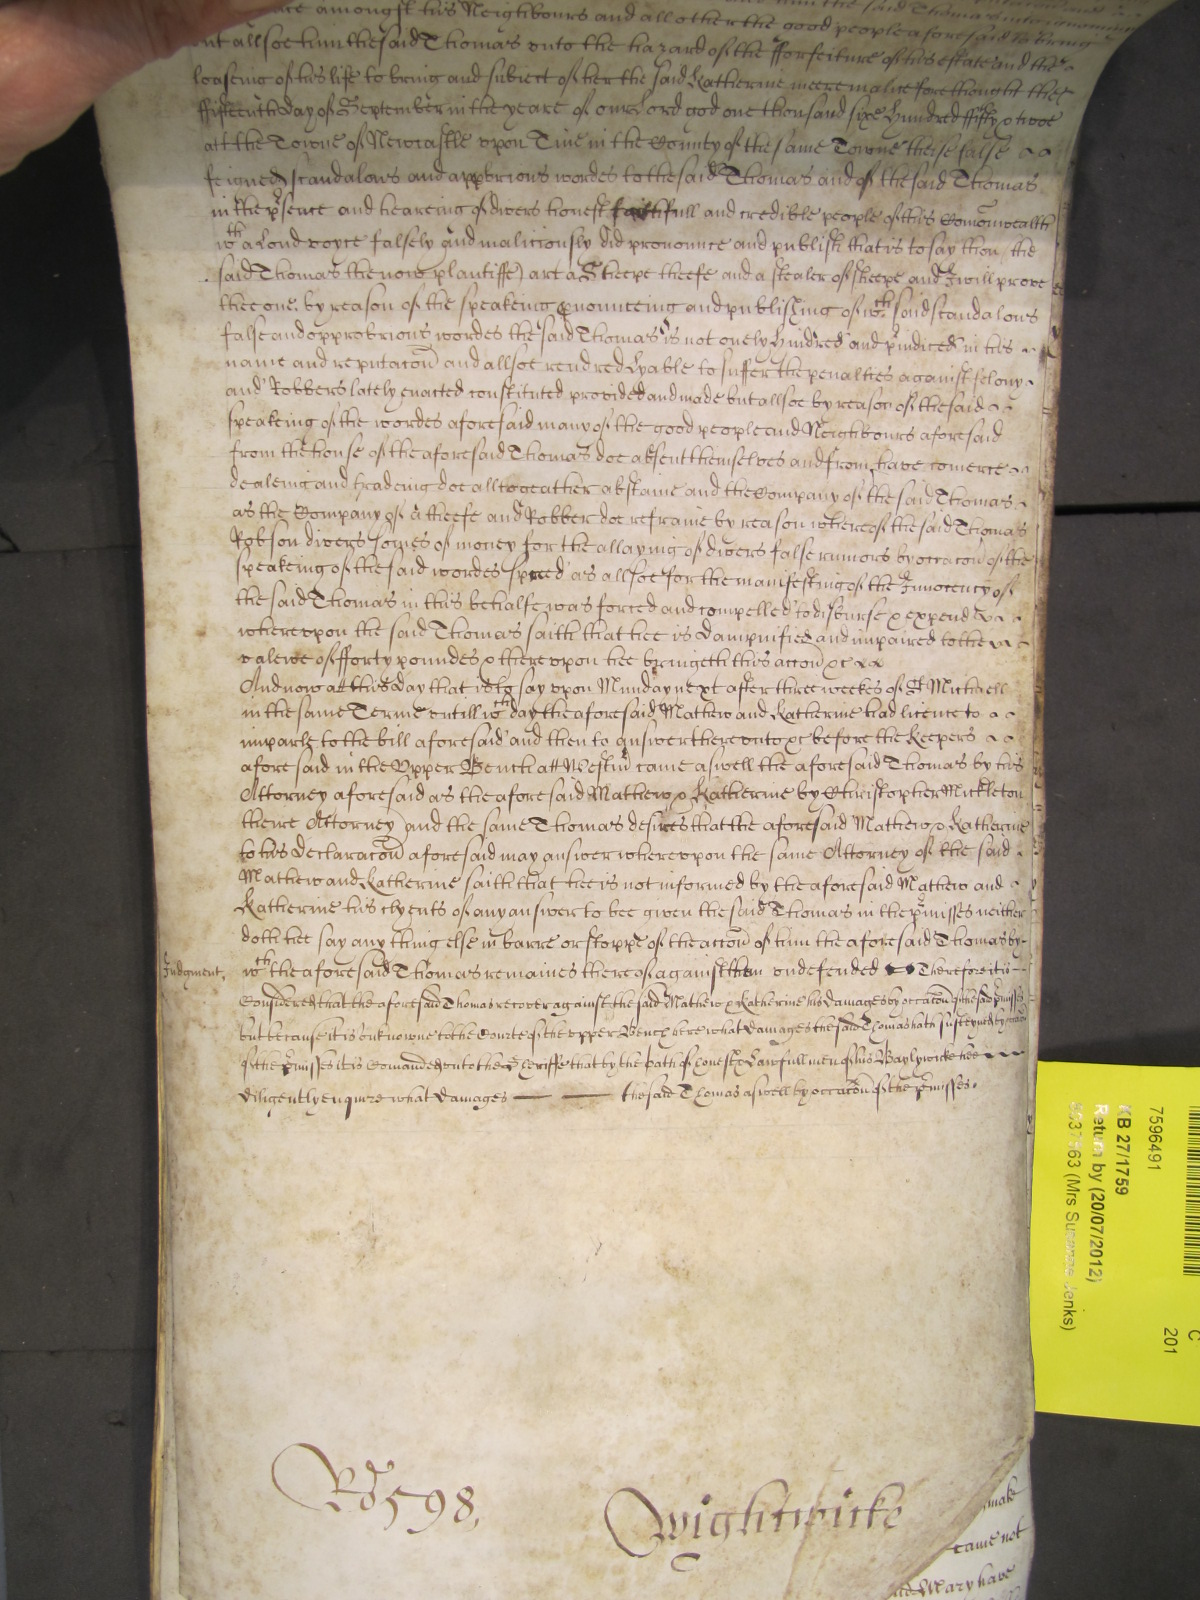 amongst his Neighbours and all other the good people aforesaid to bring
but allsoe him the said Thomas vnto the hazard of the fforfeiture of his estate and the
loaseing of his life to bring and subiect of her the said Katherine meere malice forethought the
ffifteenth day of September in the yeare of our Lord god one thousand sixe hundred ffifty & twoe
att the Towne of Newcastle vpon Tine in the County of the same Towne theise false
feigned scandalous and approbrious wordes to the said Thomas and of the said Thomas
in the p̱sence and heareing of divers honest faithfull and credible people of this Comonwealth
wth a loud voyce falsely and maliciously did pronounce and publish that is to say thou (the
said Thomas the now plantiffe) art a Sheepe theefe and a stealer of sheepe and I will prove
thee one. by reason of the speaking p̱nounceing and publishing of wch said scandalous
false and opprobrious wordes the said Thomas is not onely hindred and p̱iudiced in his
name and reputacon and allsoe rendred lyable to suffer the penalties against felony
and Robbers lately enacted constituted provided and made but allsoe by reason of the said
speaking of the wordes aforesaid many of the good people and Neighbours aforesaid
from the house of the aforesaid Thomas doe absent themselves and from have comerce
dealeing and tradeing doe alltogeather abstaine and the Company of the said Thomas
as the Company of a theefe and Robber doe refraine by reason whereof the said Thomas
Robson divers somes of money for the allaying of divers false rumors by occacon of the
speaking of the said wordes spred as allsoe for the manifesting of the Innocency of
the said Thomas in this behalfe was forced and compelled to disburse & expend
wherevpon the said Thomas saith that hee is dampnified and impaired to the
valewe of fforty poundes & therevpon hee bringeth this accon &c
And now att this day that is to say vpon Munday next after three weekes of St Michaell
in the same Terme vntill wch day the aforesaid Mathew and Katherine had licence to
imparle to the bill aforesaid and then to answer therevnto &c before the Keepers
aforesaid in the Vpper Bench att Westm̃ came aswell the aforesaid Thomas by his
Attorney aforesaid as the aforesaid Mathew & Katherine by Christopher Mickleton
theire Attorney and the same Thomas desires that the aforesaid Mathew & Katherine
to his declaracon aforesaid may answer wherevpon the same Attorney of the said
Mathew and Katherine saith that hee is not informed by the aforesaid Mathew and
Katherine his clyents of any answer to bee given the said Thomas in the p̱misses neither
doth hee say any thing else in barre or stoppe of the accon of him the aforesaid Thomas by
Judgment. wch the aforesaid Thomas remaines thereof against them vndefended Therefore it is
Considered that the aforesaid Thomas recover against the said Mathew & Katherine his damages by occacon of the said p̱misses
but because it is vnknowne to the Courte of the vpper Bench here what damages the said Thomas hath susteyned by
of the p̱misses it is Comanded vnto the Sheriffe that by the oath of honest & lawfull men of his Baylywicke hee
diligently enquire what damages the said Thomas aswell by occacon of the p̱misses.
Rd 598.
Wightwicke
make
came not
Mary have
7596491
KB 27/1759
Return by (20/07/2012)
C
201